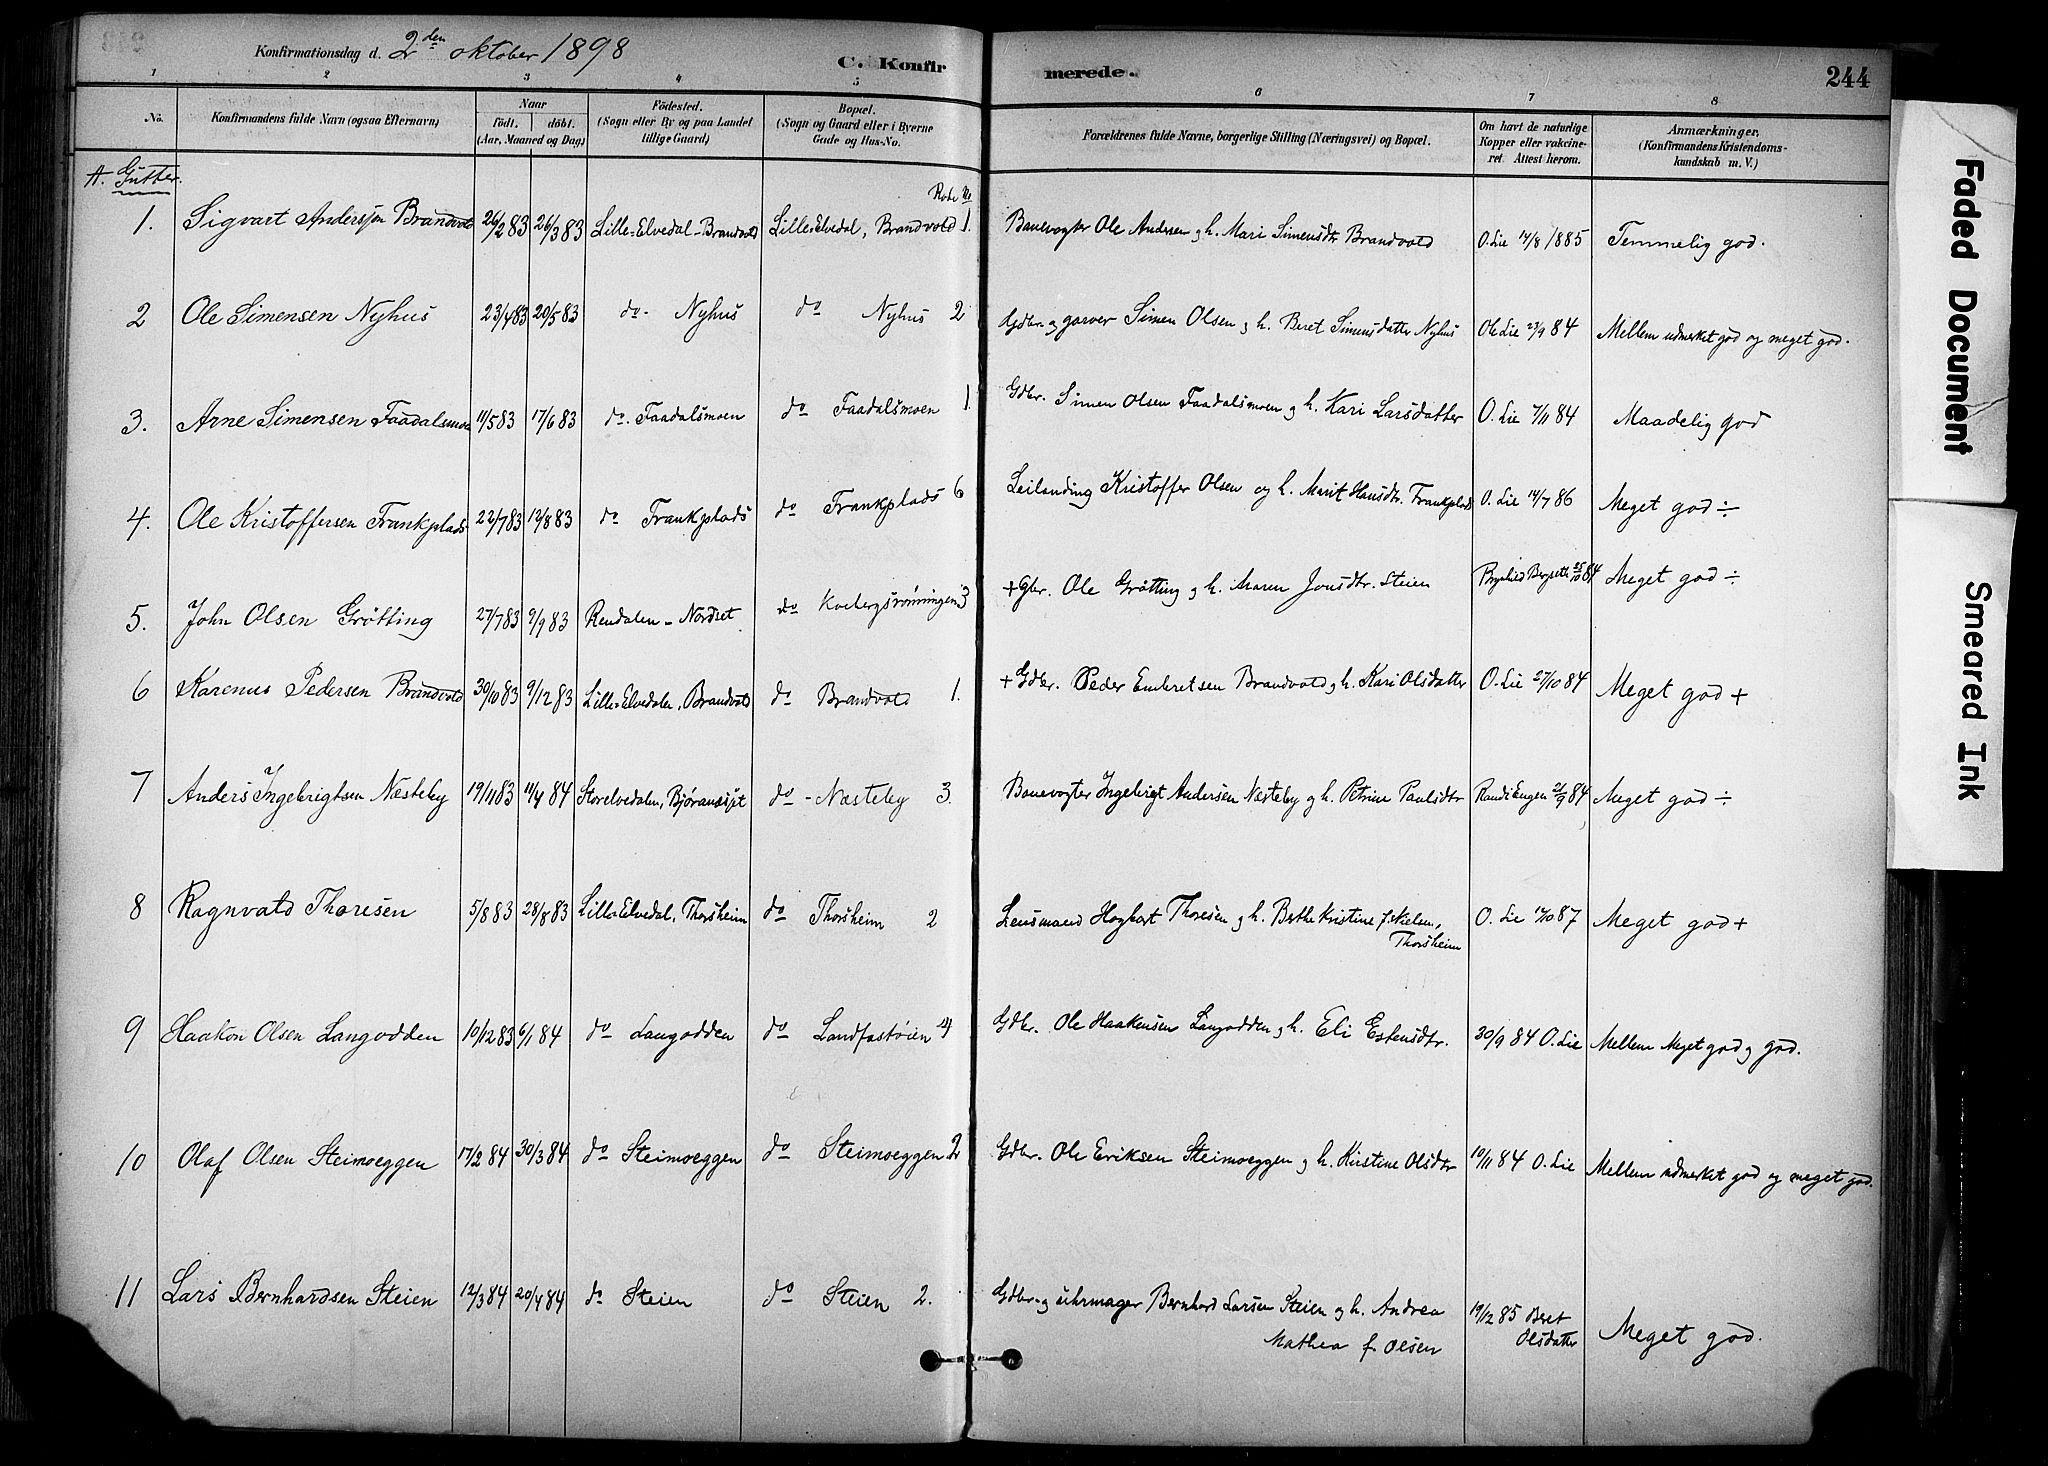 Konfirmationsdag d. 2den oktober 1898
C. Konfirmerede.
244
1 2 3 4 5 6 7 8
No. Konfirmandens fulde Navn (ogsaa Efternavn) Naar födt. döbt. (Aar, Maaned og Dag) Födested. (Sogn eller By og paa Landet tillige Gaard) Bopæl. (Sogn og Gaard eller i Byerne Gade og Hus-No. Forældrenes fulde Navne, borgerlige Stilling (Næringsvei) og Bopæl. Om havt de naturlige Kopper eller vakcineret. Attest herom. Anmærkninger. (Konfirmandens Kristendomskundskab m. V.)
A. Gutter.
Rode No
1. Sigvart Anderssen Brandvold 26/2 83 26/3 83 Lille-Elvedal-Brandvold Lille-Elvedal, Brandvold 1. Banevogter Ole Andersen og h. Mari Simensdtr Brandvold O. Lie 14/8 1885 Temmelig god.
2 Ole Simensen Nyhus 23/4 83 20/5 83 do - Nyhus do Nyhus 2 Gdbr. og garver Simen Olsen og h. Beret Simensdatter Nyhus Ole Lie 23/9 84 Mellem udmerket god og meget god.
3. Arne Simensen Faadalsmoen 11/5 83 17/6 83 do. Faadalsmoen do Faadalsmoen 1. Gdbr. Simen Olsen Faadalsmoen og h. Kari Larsdatter O. Lie 7/11 84 Maadelig god
4. Ole Kristoffersen Frankplads 22/7 83 12/8 83 do Frankplads do Frankplads 6 Leilending Kristoffer Olsen og h. Marit Hansdtr. Frankplads O. Lie 14/7 86 Meget god ÷
5. John Olsen Grøtting 27/7 83 9/9 83 Rendalen - Nordset do Kvebergsrønningen 3 + Gbr. Ole Grøtting og h. Maren Jonsdtr. Steien Bergseth 25/10 84 Meget god ÷
6 Karenus Pedersen Brandvold 30/10 83 9/12 83 Lille-Elvedalen, Brandvold do Brandvold 1. + Gdbr. Peder Embretsen Brandvold og h. Kari Olsdatter O. Lie 27/10 84 Meget god +
7 Anders Ingebrigtsen Næsteby 19/11 83 11/4 84 Storelvedalen, Bjøranesset do - Næsteby 3. Banevogter Ingebrigt Andersen Næsteby og h. Petrine Paulsdtr Randi Engen 21/9 84 Meget god ÷
8 Ragnvald Thoresen 5/8 83 28/8 83 Lille-Elvedal, Thorsheim do Thorsheim 2 Lensmand Hagbart Thoresen og h. Berthe Kristine f. Nielsen, Thorsheim O. Lie 12/10 87 Meget god +
9 Haakon Olsen Langodden 10/12 83 6/1 84 do Langodden do Landfastøien 4 Gdbr. Ole Haakensen Langodden og h. Eli Estensdtr. 30/9 84 O. Lie Mellem Meget god og god.
10 Olaf Olsen Steimoeggen 17/2 84 30/3 84 do Steimoeggen do Steimoeggen 2 Gdbr. Ole Eriksen Steimoeggen og h. Kristine Olsdtr 10/11 84 O. Lie Mellem udmerket god og meget god.
11 Lars Bernhardsen Steien 12/3 84 20/4 84 do Steien do Steien 2. Gdbr. og uhrmager Bernhard Larsen Steien og h. Andrea Mathea f. Olsen 19/12 85 Beret Olsdatter Meget god.
Faded Document
Smeared Ink